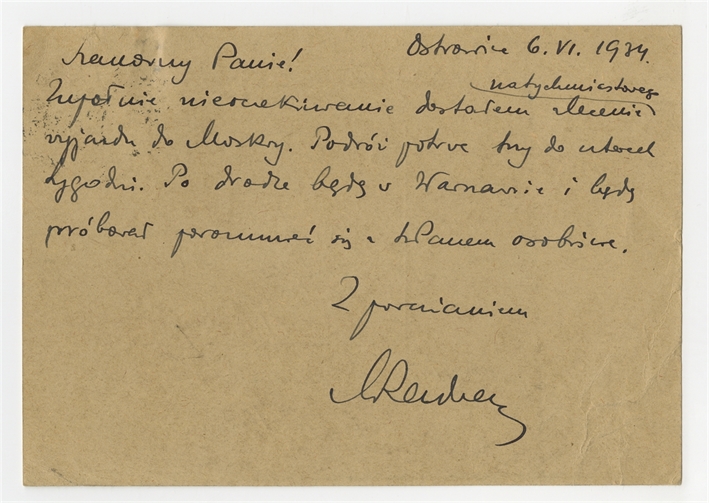 Ostrowiec 6. VI. 1934.
Szanowny Panie!
natychmiastowego
Zupełnie nieoczekiwanie dostałem zlecenie
wyjazdu do Moskwy. Podróż potrwa trzy do czterech
tygodni. Po drodze będę w Warszawie i będę
próbował porozumieć się z WPanem osobiście.
Z poważaniem